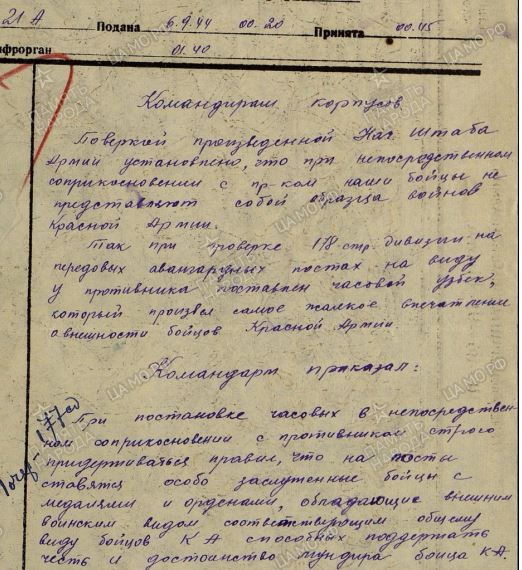 21 А Подана 6.9.44 00-20 Принята 00.45
фрорган 01.40
Командирам корпусов
Поверкой произведенной Нач Штаба
Армии установлено, что при непосредственном
соприкосновении с пр-ком наши бойцы не
представляют собой образца воинов
Красной Армии.
Так при проверке 178 стр. дивизии на
передовых авангардных постах на виду
у противника поставлен часовой узбек,
который произвел самое жалкое впечатление
о внешности бойцов Красной Армии.
Командарм приказал:
При постановке часовых в непосредствен-
ном соприкосновении с противником строго
придерживаться правил, что на посты
ставятся особо заслуженные бойцы с
медалями и орденами, обладающие внешним
воинским видом соответствующим общему
виду бойцов КА способных поддержать
честь и достоинство мундира бойца КА.
177сд
ПАМЯТЬ НАРОДА
ЦАМО.РФ